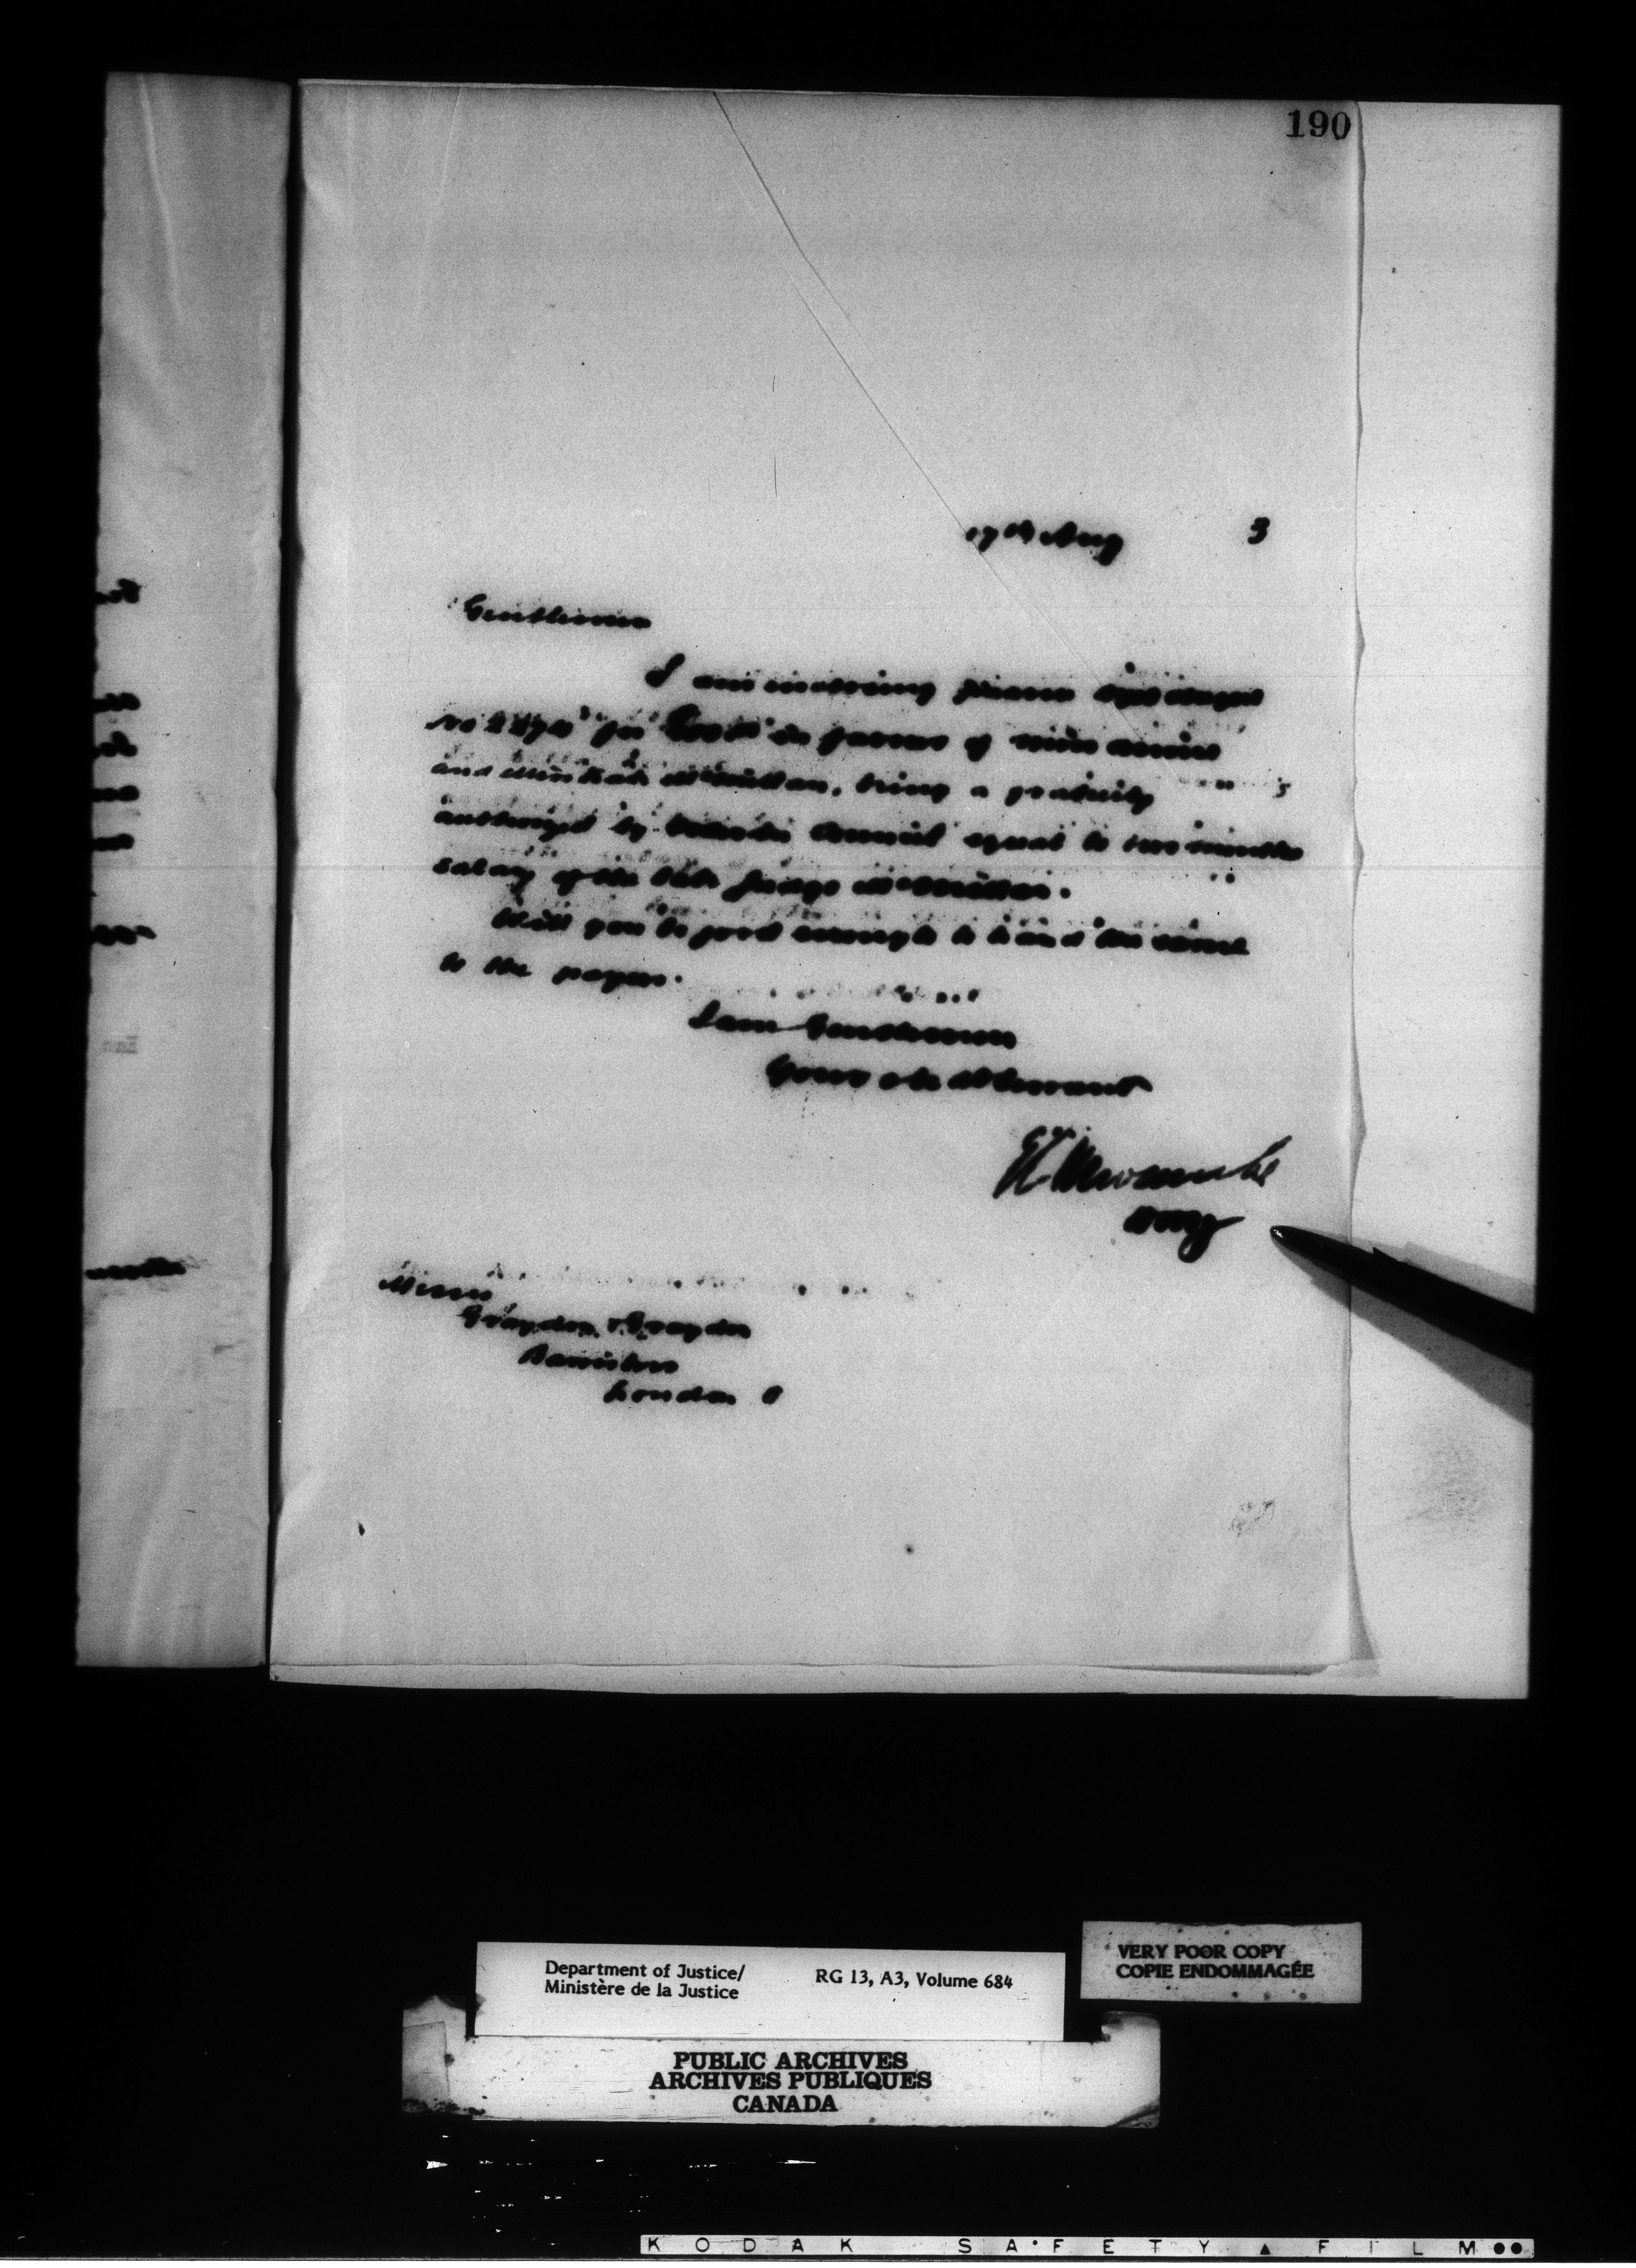 190
17th Aug 3
Gentlemen
I am enclosing
No 2274 for in favour of Miss
and Miss McMillan, being a gratuity
authorized by Council equal to two months
salary of the late Judge McMillan.
Will you be good enough to hand the same
to the payees.
I am Gentlemen
Your obt Servant
Messrs
Graydon & Graydon
Barristers
London O
Department of Justice/
Ministère de la Justice
RG 13, A3, Volume 684
VERY POOR COPY
COPIE ENDOMMAGÉE
PUBLIC ARCHIVES
ARCHIVES PUBLIQUES
CANADA
KODAK SAFETY FILM